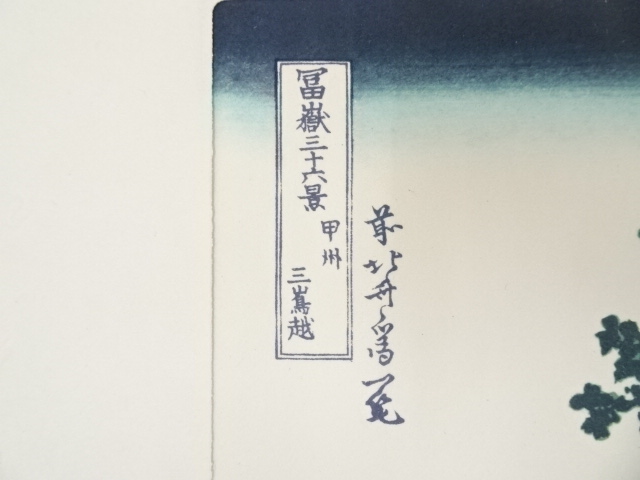 冨嶽三十六景
甲州
三嶌越
前北斎為一笔